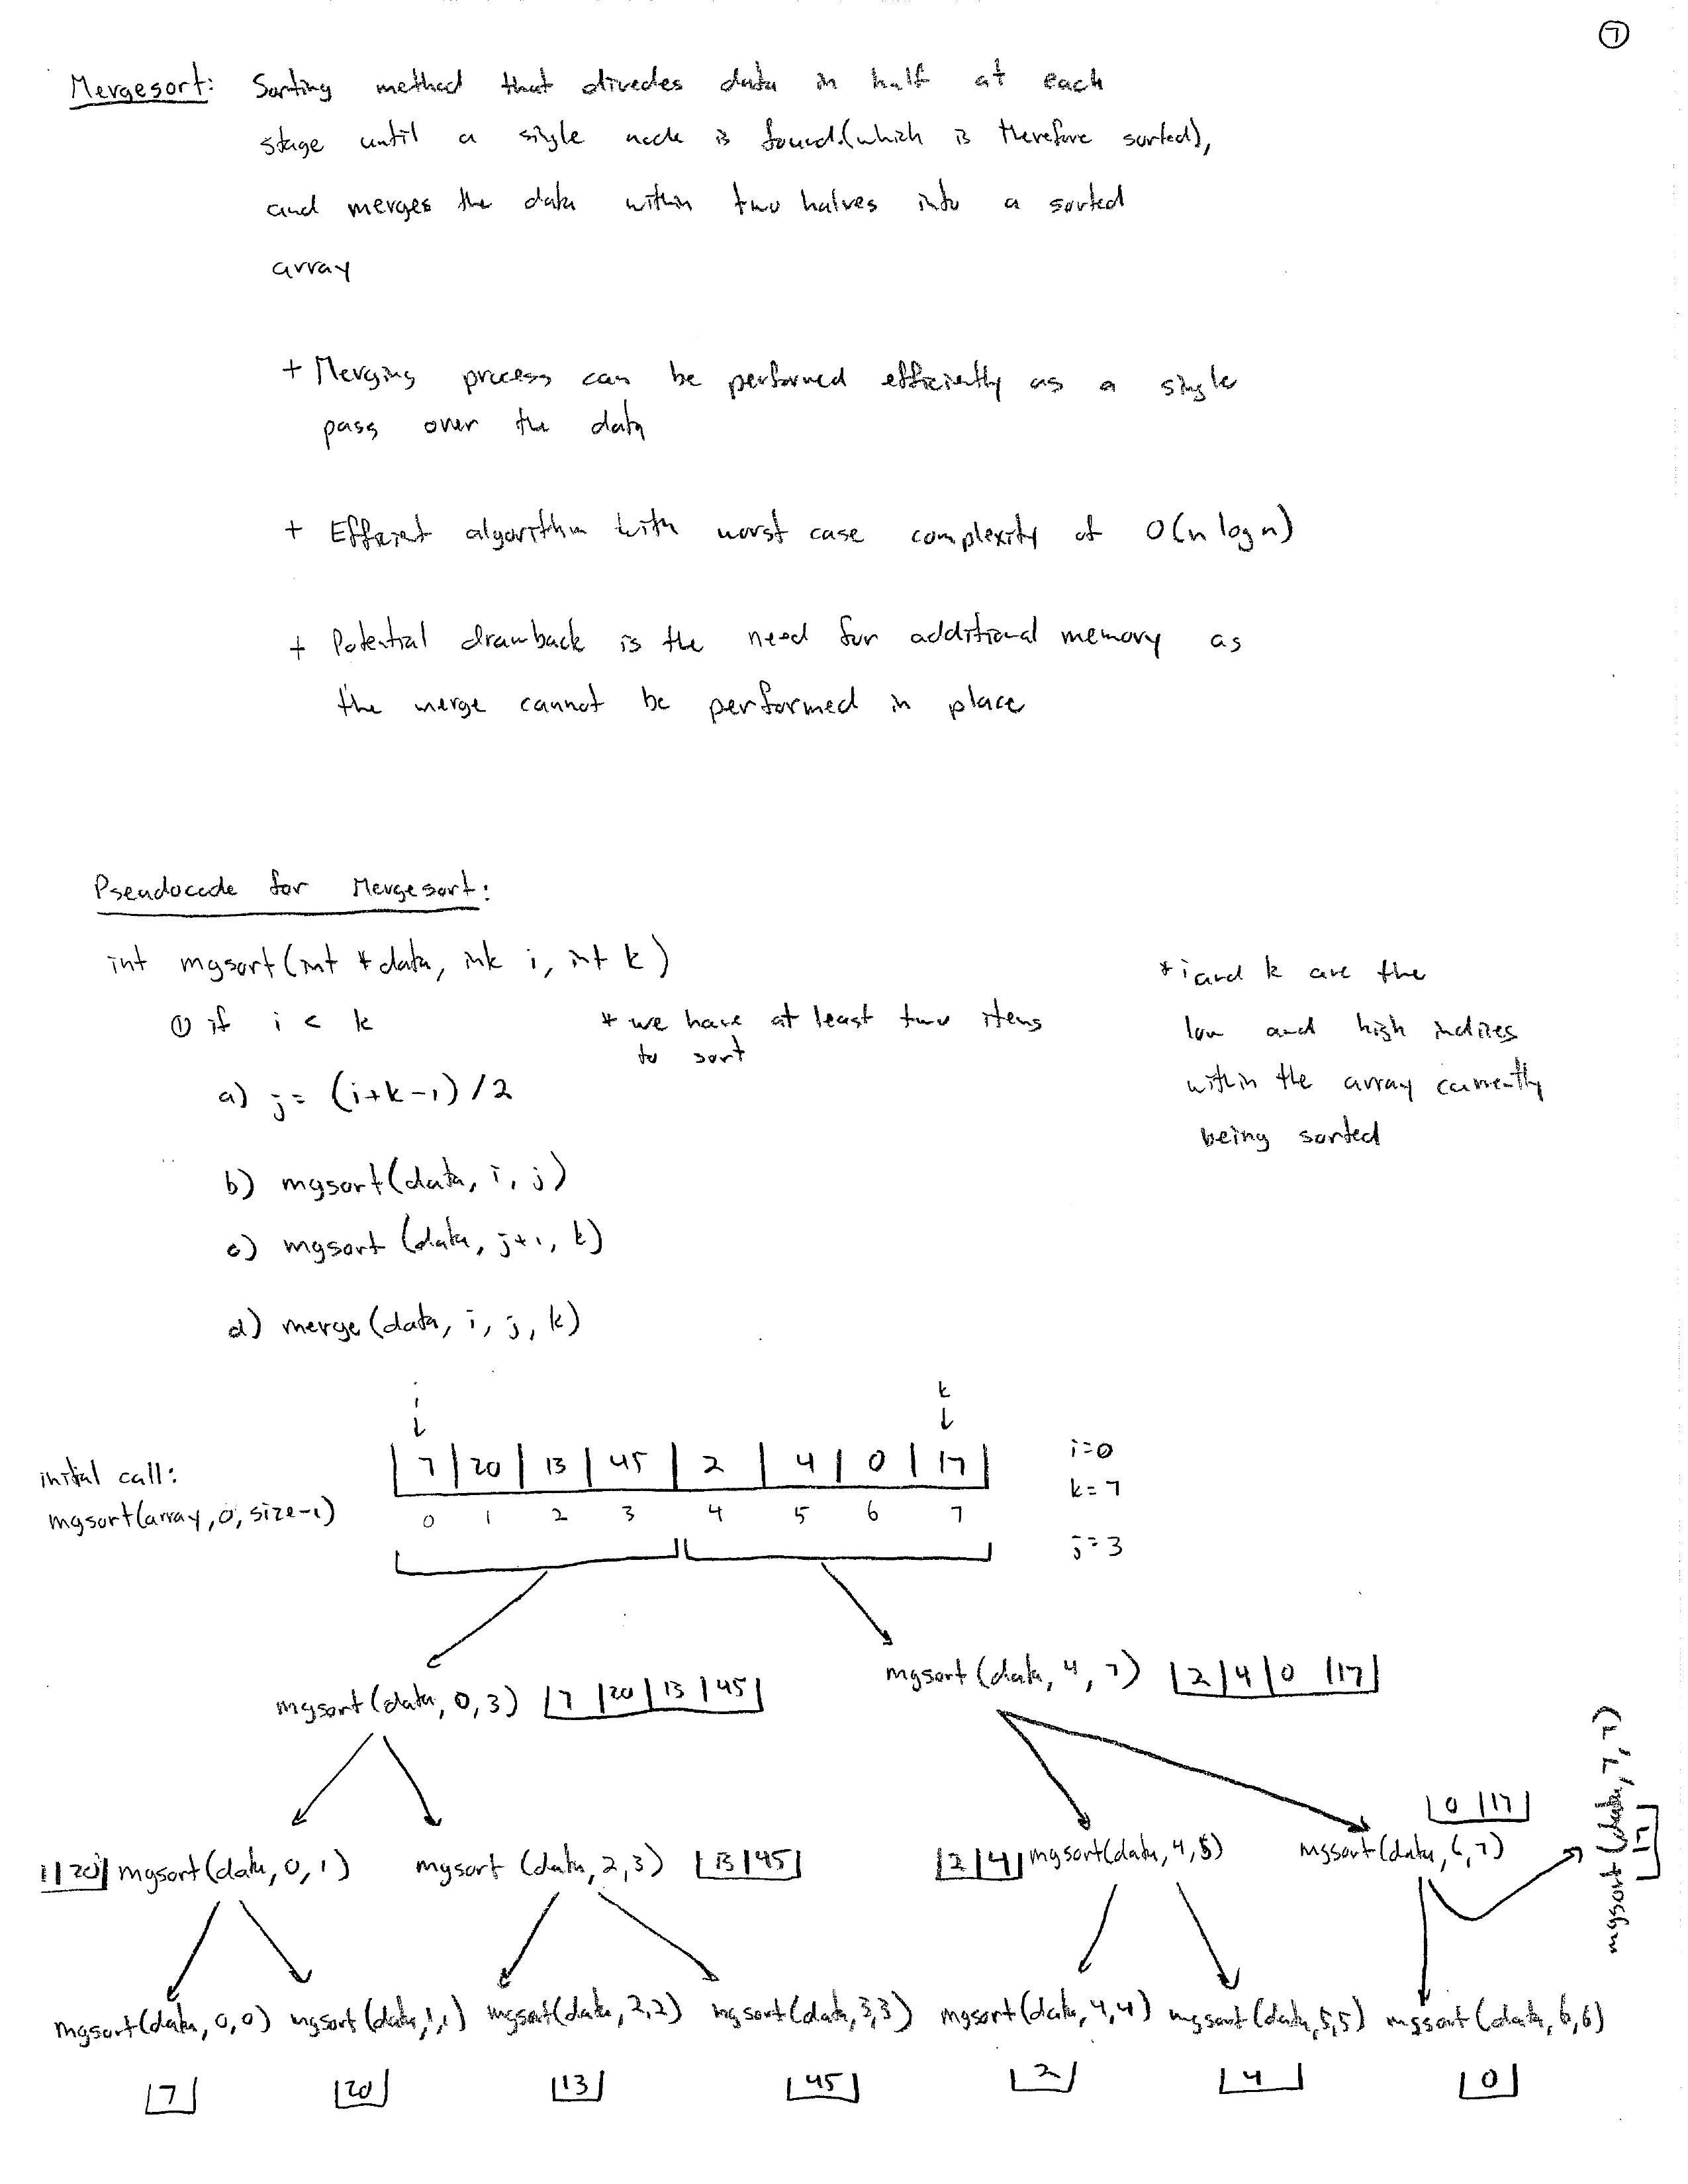 7
Mergesort: Sorting method that divedes data in half at each
stage until a single node is found.(which is therefore sorted),
and merges the data within two halves into a sorted
array
+ Merging process can be performed efficiently as a single
pass over the data
+ Efficient algorithm with worst case complexity of O(n log n)
+ Potential drawback is the need for additional memory as
the merge cannot be performed in place
Pseudocode for Mergesort:
int mgsort(int *data, int i, int k)
① if i < k * we have at least two items
to sort
* i and k are the
low and high indices
within the array currently
being sorted
a) j = (i+k-1)/2
b) mgsort(data, i, j)
c) mgsort (data, j+1, k)
d) merge(data, i, j, k)
i k
initial call:
mgsort(array, 0, size-1)
7 20 13 45 2 4 0 17
0 1 2 3 4 5 6 7
i=0
k=7
j=3
mgsort(data, 0,3) 7 20 13 45
mgsort(data, 4, 7) 2 4 0 17
20 mgsort(data, 0, 1)
mgsort (data, 2,3) 13 45
2 4 mgsort(data, 4,5)
0 17
mgsort(data, 6,7)
mgsort (data, 7, 7)
17
mgsort(data, 0,0) mgsort (data, 1,1) mgsort(data, 2,2) mgsort(data,3,3) mgsort(data, 4,4) mgsort (data,5,5) mgsort (data, 6,6)
7 20 13 45 2 4 0